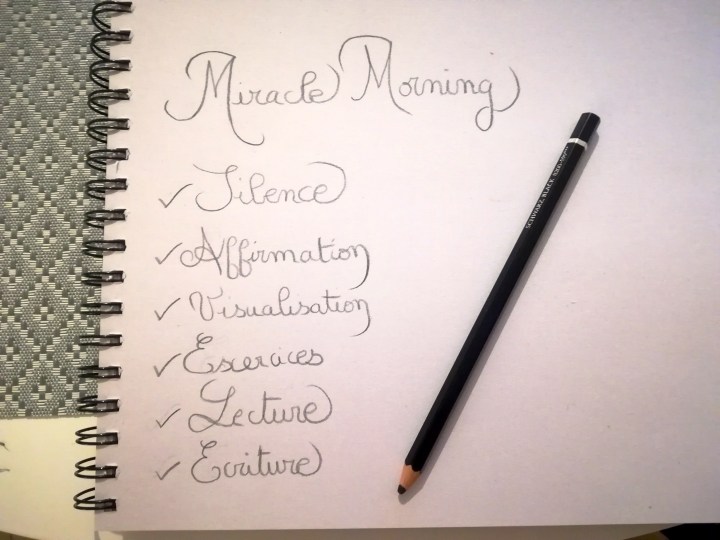 Miracle Morning
✓ Silence
✓ Affirmation
✓ Visualisation
✓ Exercices
✓ Lecture
✓ Ecriture
SCHWARZ BLACK